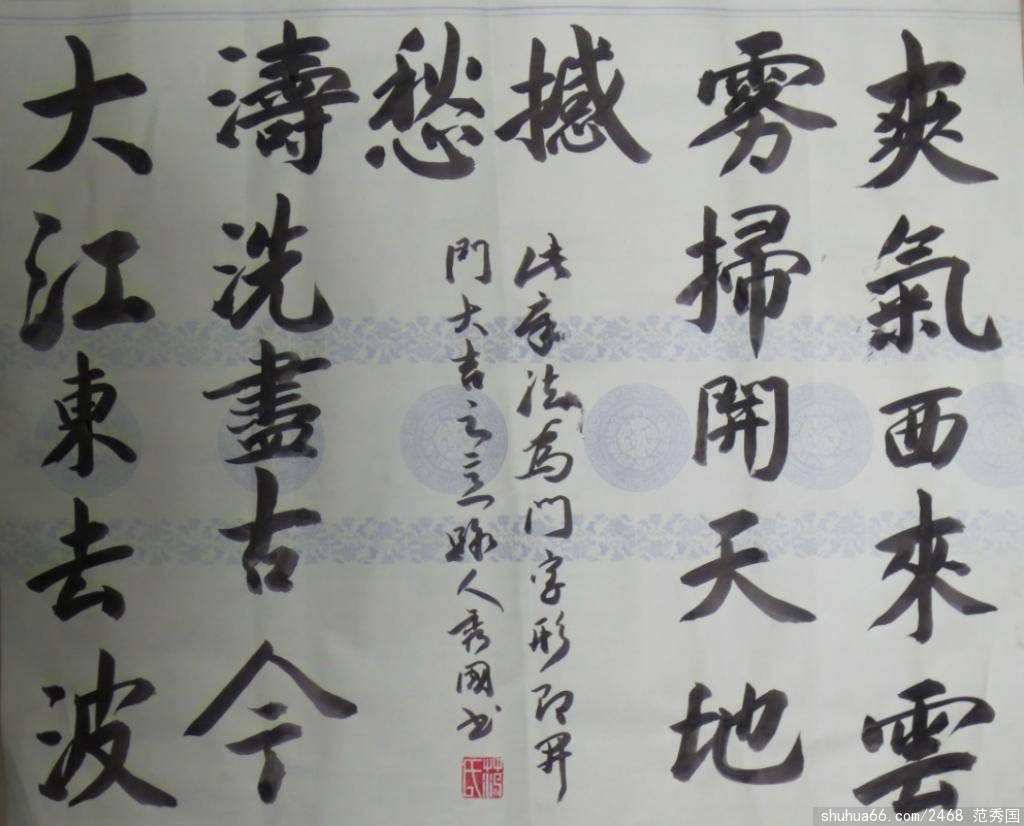 爽氣西來雲
霧掃開天地
撼
大江東去波
濤洗盡古今
愁
此章法為門字形即開
門大吉之意人秀國書
范氏
shuhua66.com/2468 范秀国